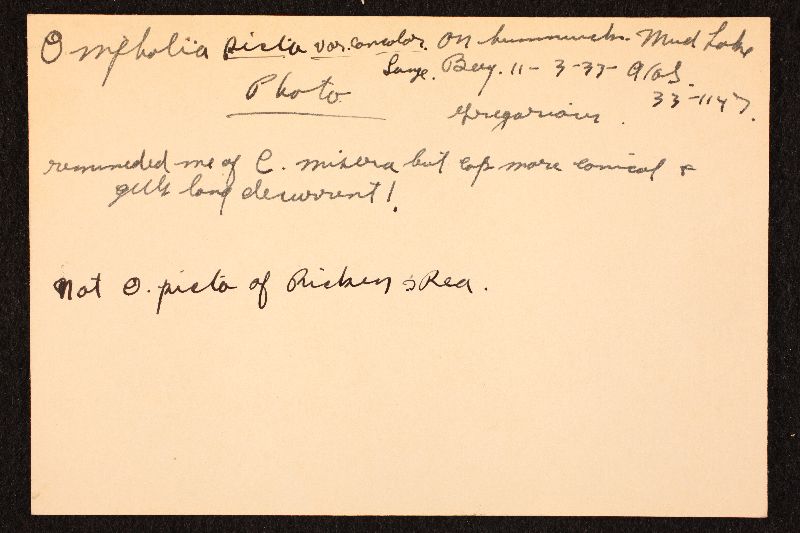 Omphalia picta var. concolor. On hummocks. Mud Lake
Lange. Bay. 11-3-33
Photo 33-1147.
gregarious.
reminded me of C. misera but cap more conical &
gills long decurrent!
Not O. picta of Ricken & Rea.